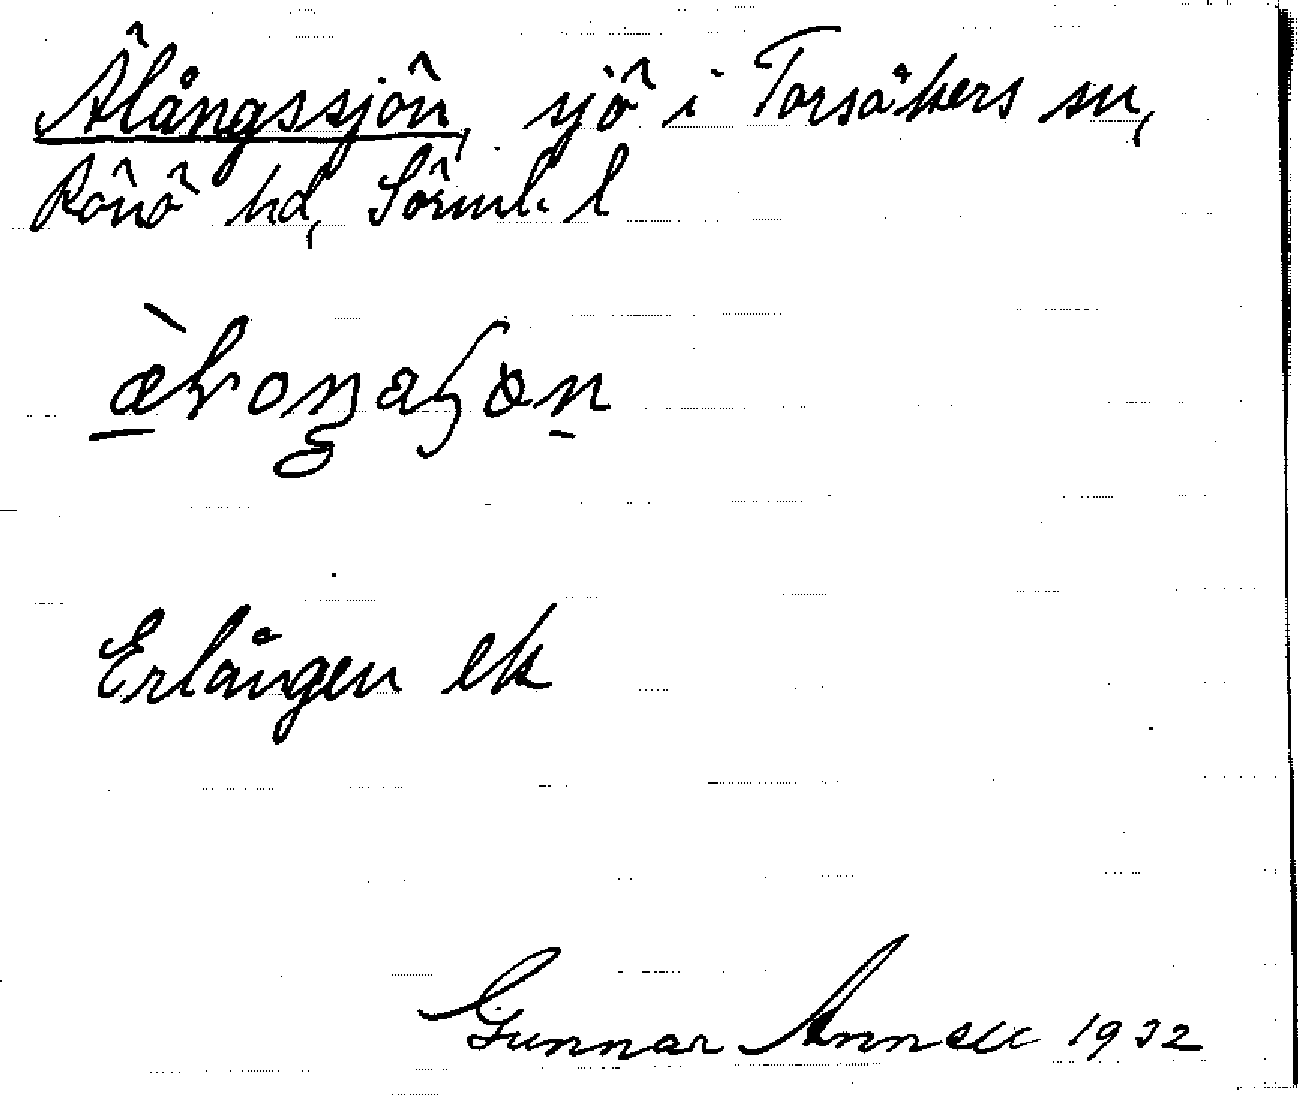 Älångssjön, sjö i Torsåkers sn,
Rönö hd, Sörml. l
Erlången ek
Gunnar Annell 1932